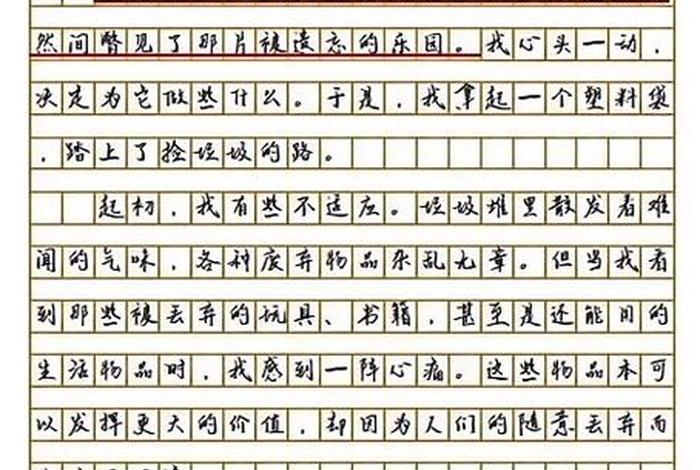 然间瞥见了那片被遗忘的乐园。我心头一动，
决定为它做些什么。于是，我拿起一个塑料袋
，踏上了捡垃圾的路。
起初，我有些不适应。垃圾堆里散发着难
闻的气味，各种废弃物品杂乱无章。但当我看
到那些被丢弃的玩具、书籍，甚至是还能用的
生活物品时，我感到一阵心痛。这些物品本可
以发挥更大的价值，却因为人们的随意丢弃而